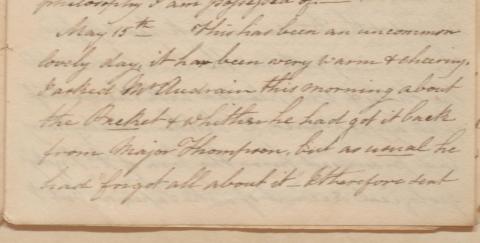 philosophy I am possessed of.—
May 15th This has been an uncommon
lovely day, it has been very warm & cheering,
I asked Mr Audrain this morning about
the Packet & whither he had got it back
from Major Thompson, but as usual he
had forgot all about it— I therefore sent